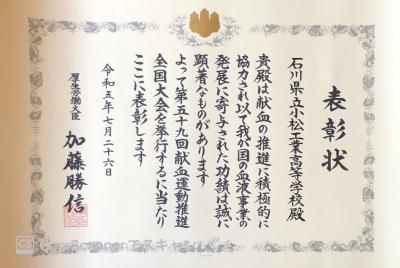 表彰状
石川県立小松工業高等学校殿
貴殿は献血の推進に積極的に
協力され以て我が国の血液事業の
発展に寄与された功績は誠に
顕著なものがあります
よって第五十九回献血運動推進
全国大会を挙行するに当たり
ここに表彰します
令和五年七月二十六日
厚生労働大臣
加藤勝信
CS CamScannerでスキャン